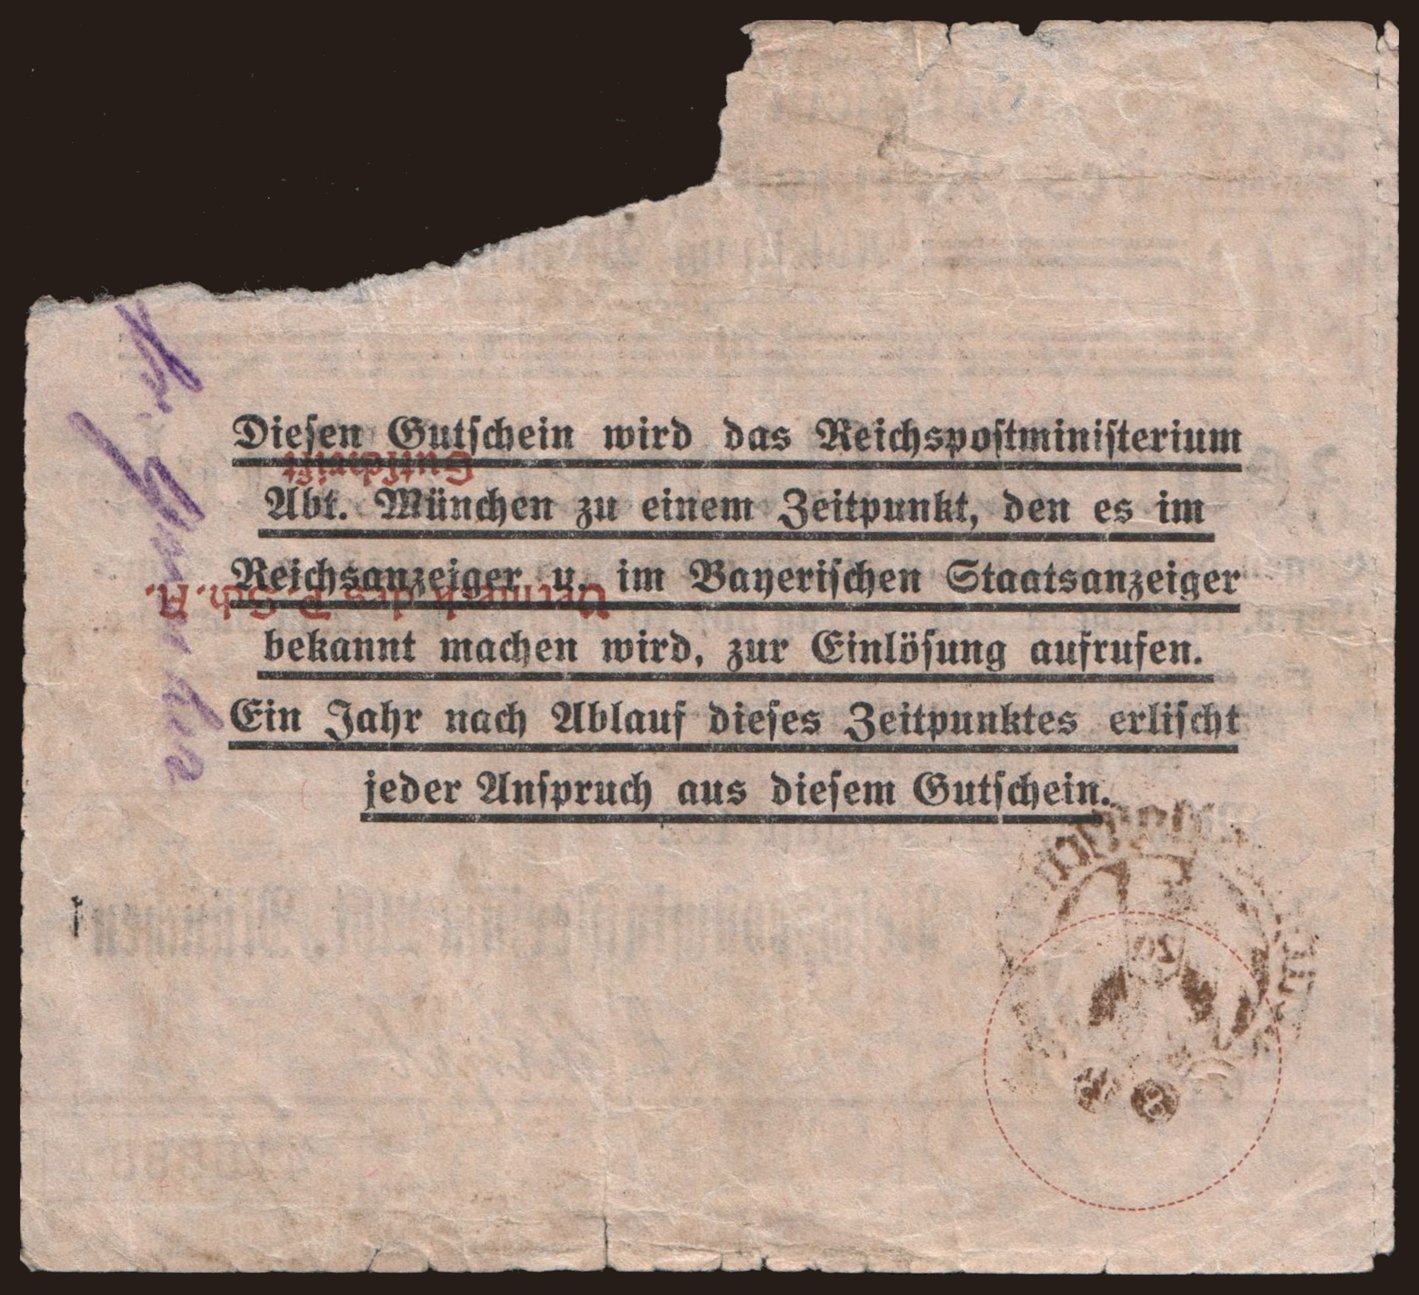 Diesen Gutschein wird das Reichspostministerium
Gutschrift
Abt. München zu einem Zeitpunkt, den es im
Reichsanzeiger u. im Bayerischen Staatsanzeiger
Vermerk des P.Sch.A.
bekannt machen wird, zur Einlösung aufrufen.
Ein Jahr nach Ablauf dieses Zeitpunktes erlischt
jeder Anspruch aus diesem Gutschein.